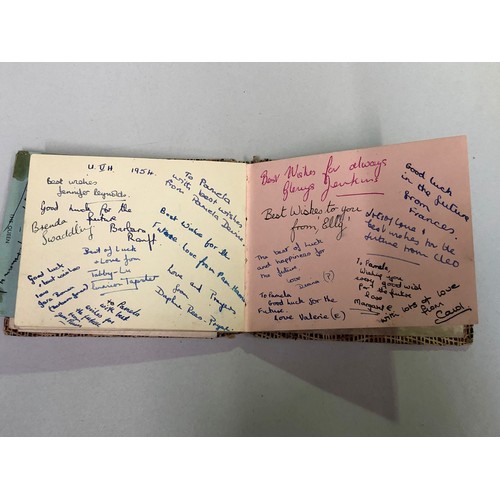 U. VH. 1954.
Best wishes
Jennifer Reynolds.
To Pamela
with best wishes
from Pamela
Good luck for the
future
Brenda
Swaddling
Barbara
Best Wishes for the
future love from Pam
Best of Luck
& Love from
Tabby-Lu
Good Luck
& best wishes
love
Love and Prayers
from
Daphne
to Pamela
with best
wishes for
the future
THE QUEEN
Best Wishes for always
Glenys Jenkins
Best Wishes to you
from, Elly.
Good Luck
in the future
from
Frances.
Lots of love &
best wishes for the
future from Cleo
The best of luck
and happiness for
the future
love
Dianna (?)
To Pamela,
Wishing you
very good wish
For the future
love
Margaret E.
To Pamela
Good luck for the
Future.
Love Valerie (E)
with lots of love
from
Carol